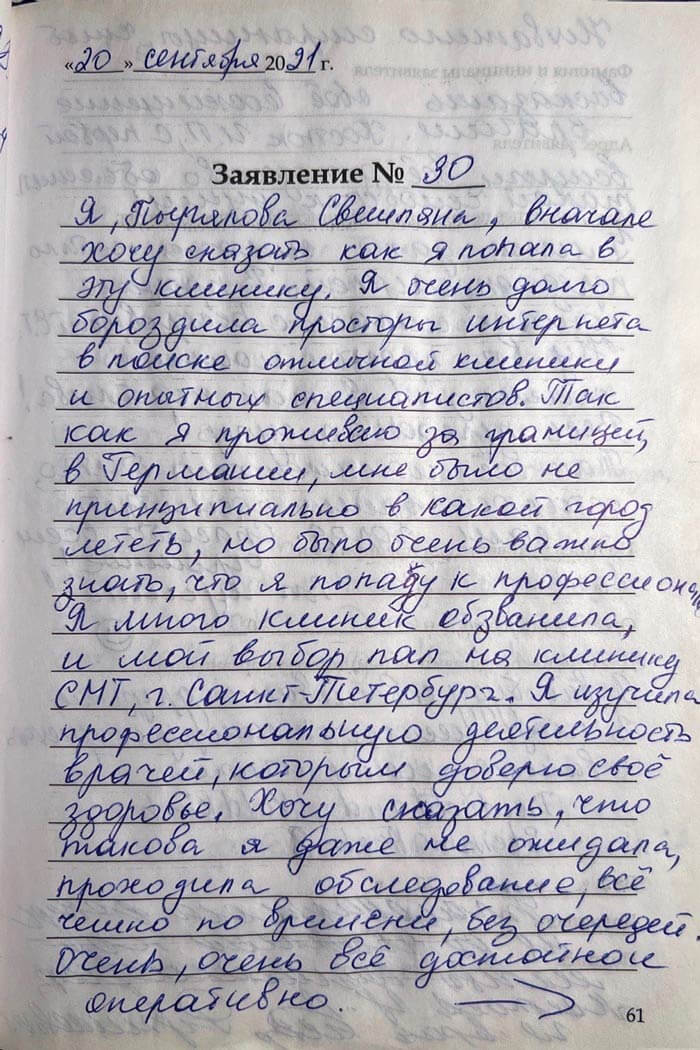 «20» сентября 2021 г.
Заявление № 30
Я, Пырялова Светлана, вначале
хочу сказать как я попала в
эту клинику. Я очень долго
бороздила просторы интернета
в поиске отличной клиники
и опытных специалистов. Так
как я проживаю за границей,
в Германии, мне было не
принципиально в какой город
лететь, но было очень важно
знать, что я попаду к профессионалу
Я много клиник обзванила,
и мой выбор пал на клинику
СМТ, г. Санкт-Петербург. Я изучила
профессиональную деятельность
врачей, которым доверю своё
здоровье. Хочу сказать, что
такова я даже не ожидала,
проходила обследование, всё
чешко по времени, без очередей.
Очень, очень всё достойно и
оперативно.
61